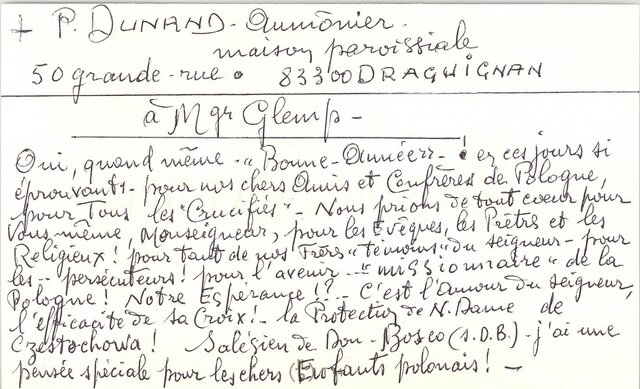 + P. DUNAND - Aumônier -
maison paroissiale
50 grande-rue • 83300 DRAGUIGNAN
à Mgr Glemp -
Oui, quand même - "Bonne-Année" - ! en ces jours si
éprouvants - pour nos chers Amis et Confrères de Pologne,
pour Tous les "Crucifiés" - Nous prions de tout coeur pour
Vous-même, Monseigneur, pour les Evêques, les Prêtres et les
Religieux ! pour tant de nos Frères "témoins" du Seigneur - pour
les - persécuteurs ! pour l'avenir - "missionnaire" de la
Pologne ! Notre Espérance !? - C'est l'Amour du Seigneur,
l'efficacité de sa Croix ! - la Protection de N. Dame de
Czestochowa ! Salésien de Don - Bosco (S.D.B.) - j'ai une
pensée spéciale pour les chers Enfants polonais ! -